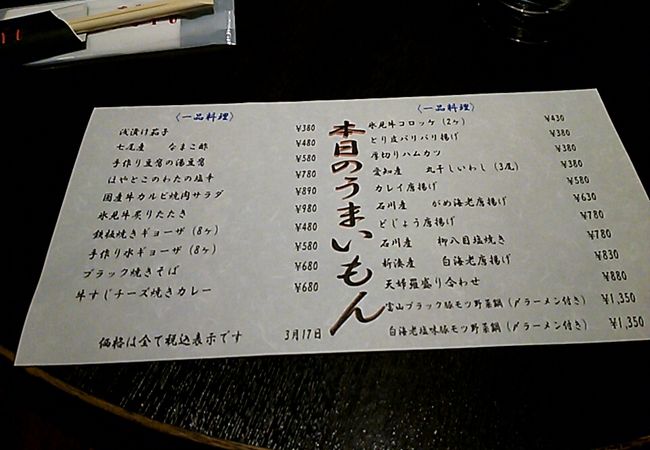 〈一品料理〉
浅漬け茄子 ¥380
七尾産 なまこ酢 ¥480
手作り豆腐の湯豆腐 ¥580
はやとこのわたの塩辛 ¥780
国産牛カルビ焼肉サラダ ¥890
氷見牛炙りたたき ¥980
鉄板焼きギョーザ(8ヶ) ¥480
手作り水ギョーザ(8ヶ) ¥580
ブラック焼きそば ¥680
牛すじチーズ焼きカレー ¥680
価格は全て税込表示です 3月17日
本日のうまいもん
〈一品料理〉
氷見牛コロッケ(2ヶ) ¥430
とり皮パリパリ揚げ ¥380
厚切りハムカツ ¥380
愛知産 丸干しいわし(3尾) ¥380
カレイ唐揚げ ¥580
石川産 がめ海老唐揚げ ¥630
どじょう唐揚げ ¥780
石川産 柳八目塩焼き ¥780
新湊産 白海老唐揚げ ¥830
天婦羅盛り合わせ ¥880
富山ブラック豚モツ野菜鍋(〆ラーメン付き) ¥1,350
白海老塩味豚モツ野菜鍋(〆ラーメン付き) ¥1,350